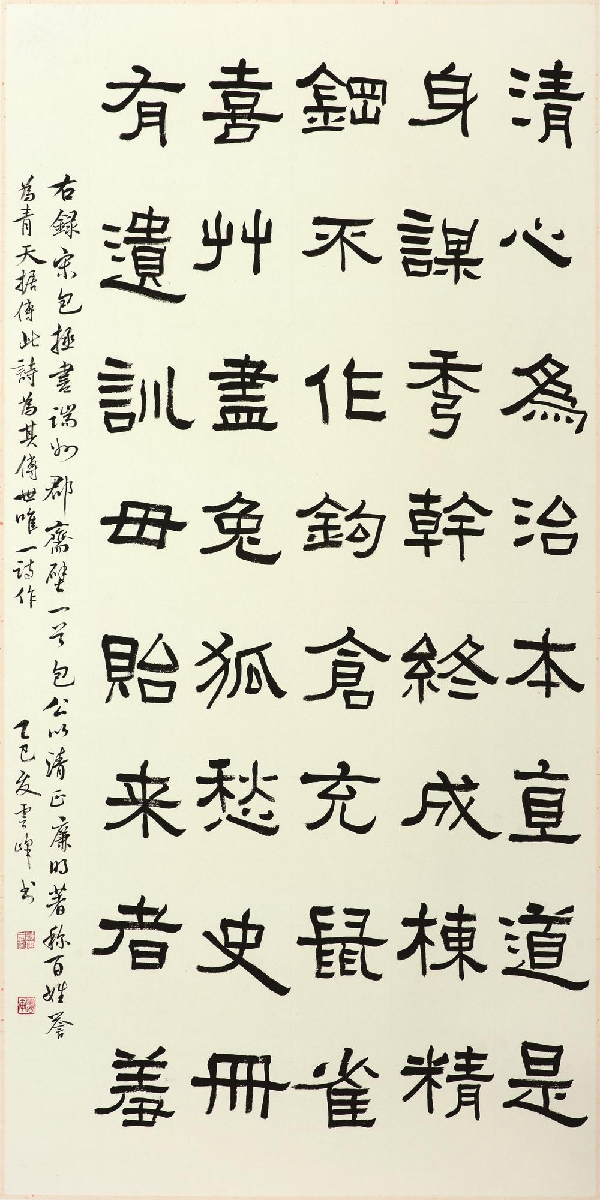 清心為治本直道是
身謀秀幹終成棟精
鋼不作鈎倉充鼠雀
喜艸盡兔狐愁史冊
有遺訓毋貽来者羞
右録宋包拯書端州郡齋壁一首包公以清正廉明著称百姓誉
為青天据傳此詩為其傳世唯一詩作 乙巳夏雲峰书